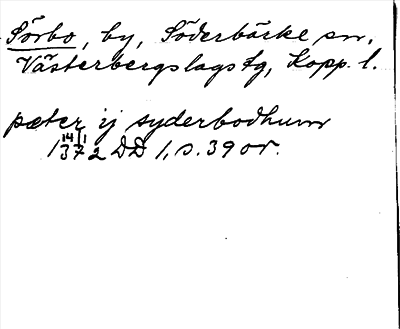 Sörbo, by, Söderbärke sn,
Västerbergslags fg, Kopp. l.
pæter ij syderbodhum
14/1 1372 DD 1, s. 39 or.